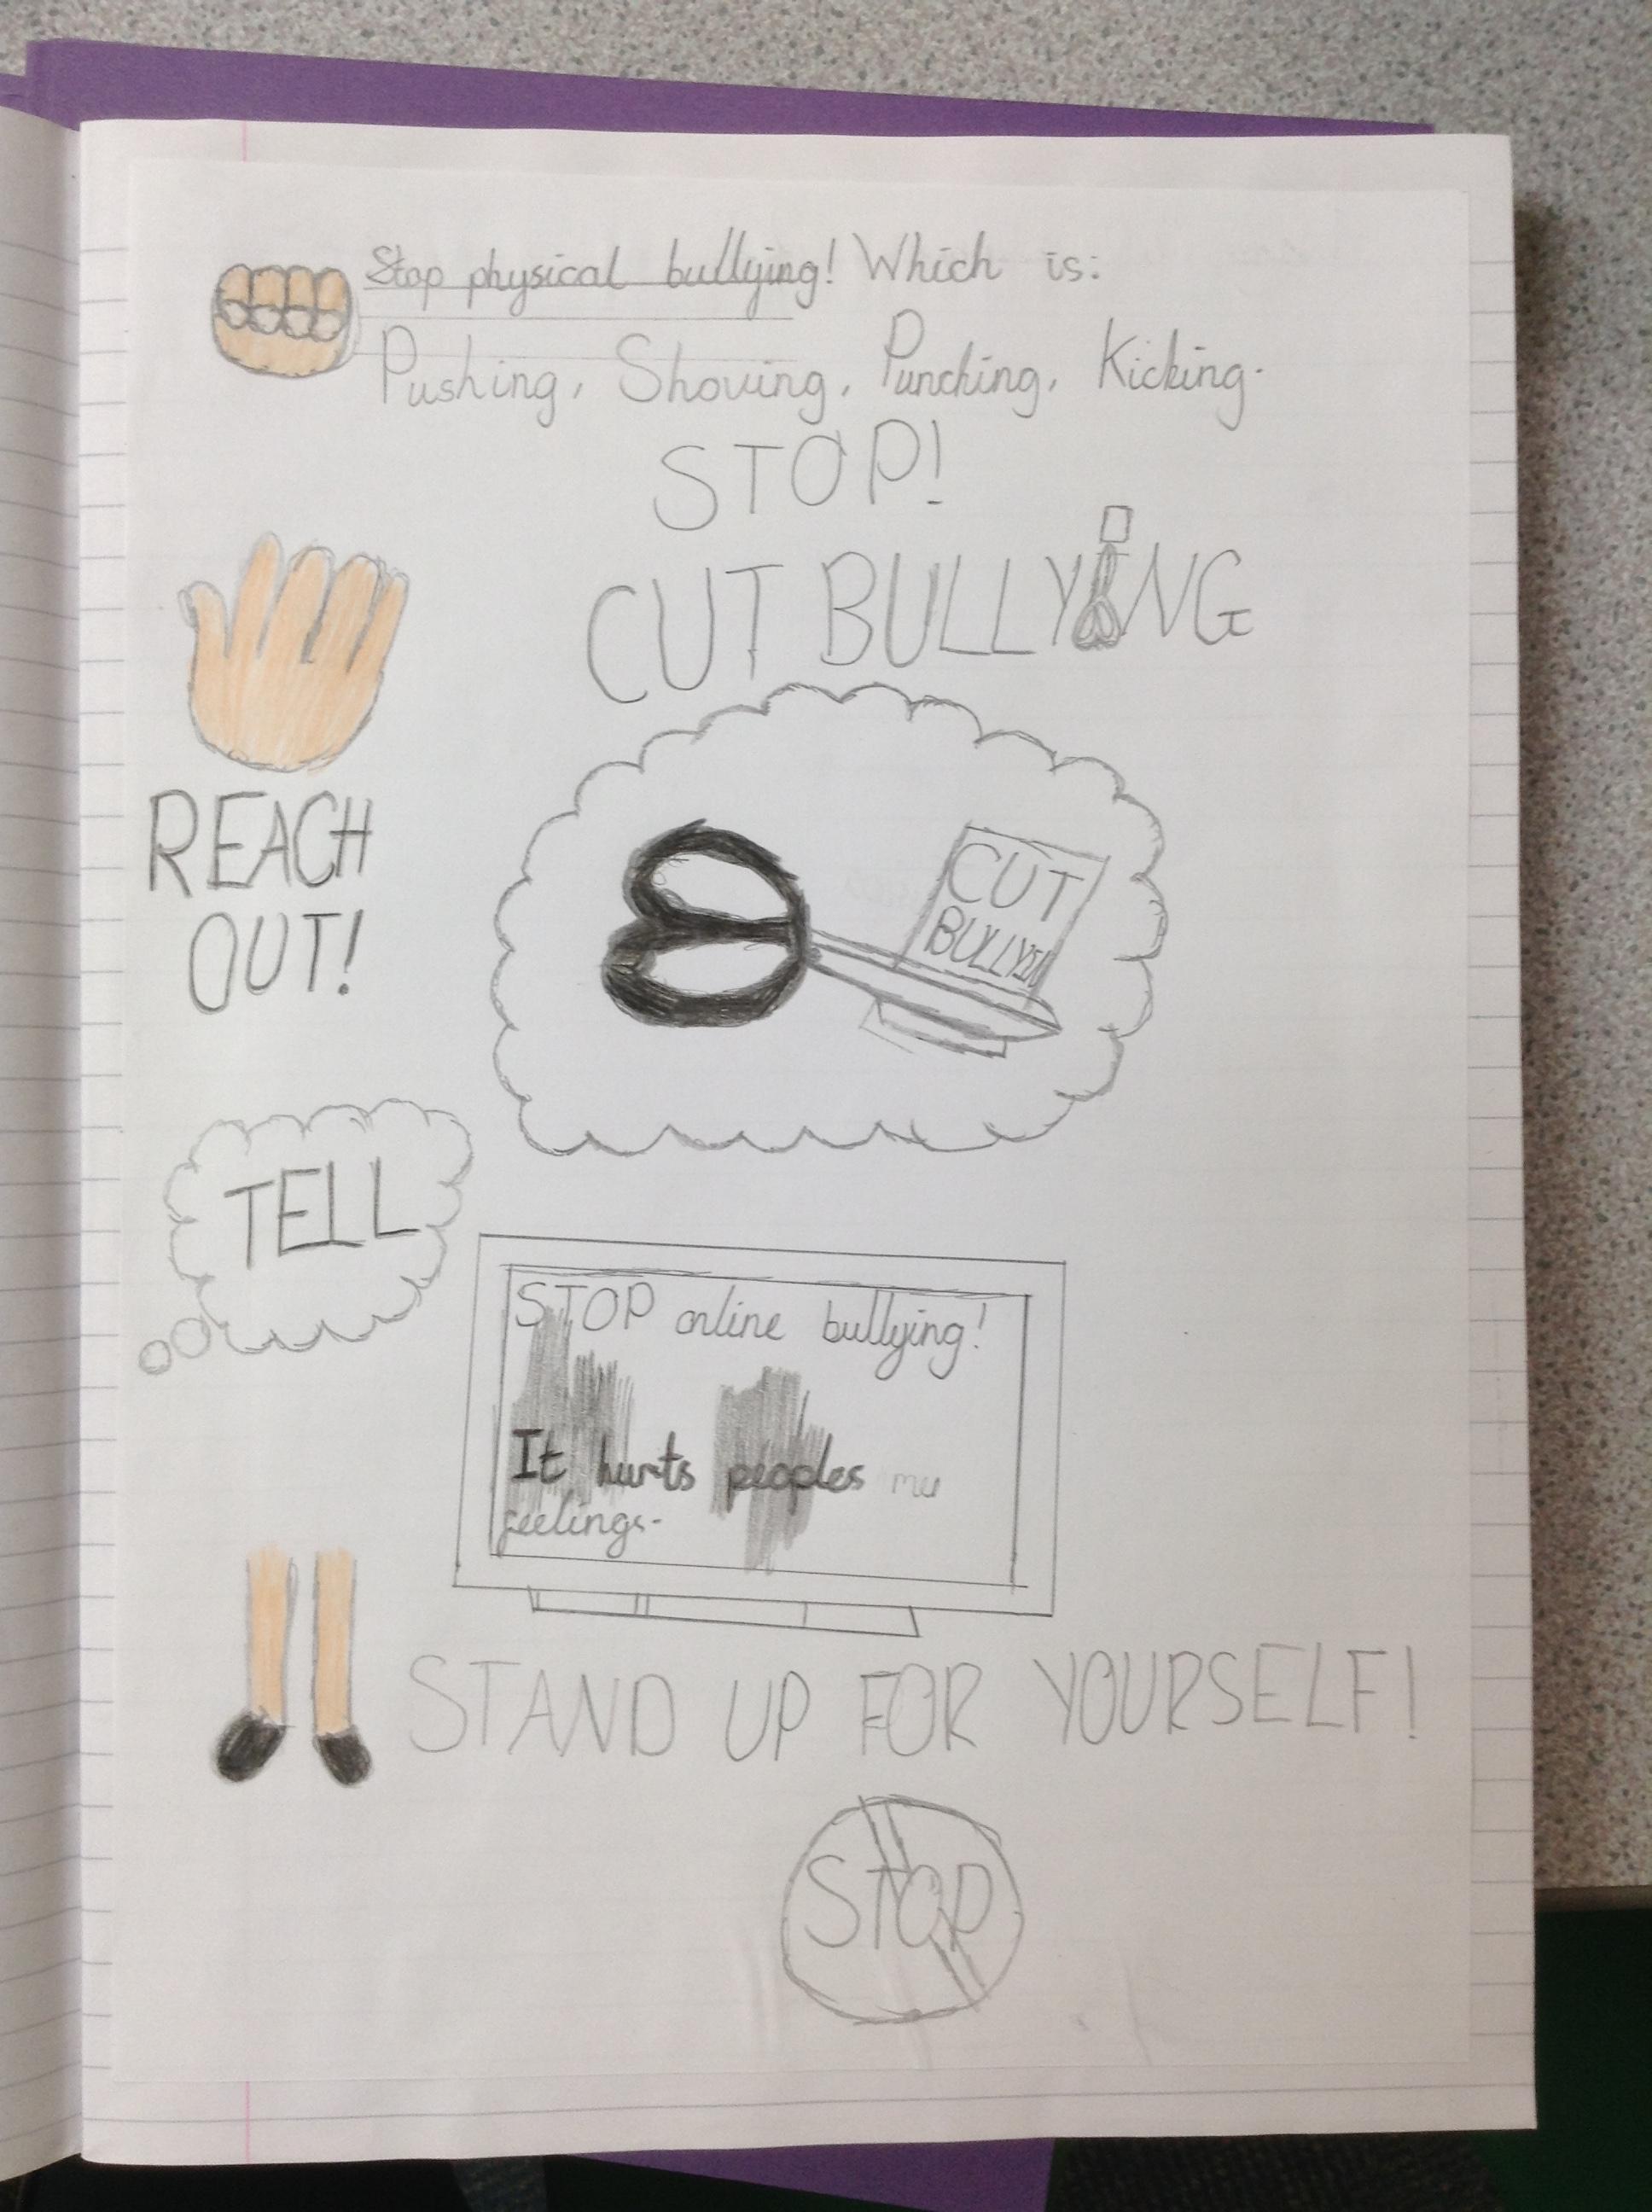 Stop physical bullying! Which is:
Pushing, Shoving, Punching, Kicking.
STOP!
CUT BULLYING
REACH
OUT!
CUT
BULLYI
TELL
STOP online bullying!
It hurts peoples
feelings.
STAND UP FOR YOURSELF!
STOP